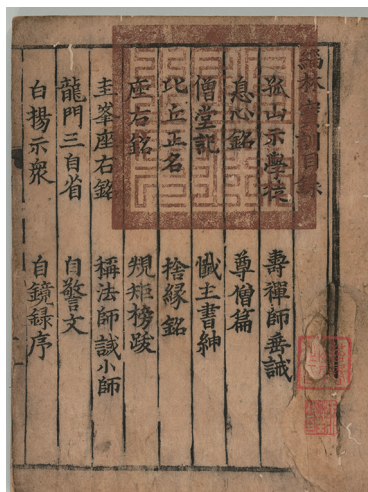 緇林寶訓目錄
孤山示學徒　壽禪師垂誡
息心銘　尊僧篇
僧堂記　懺主書紳
比丘正名　捨縁銘
座右銘　規矩榜跋
圭峯座右銘　稱法師誡小師
龍門三自省　自警文
白楊示衆　自鏡録序